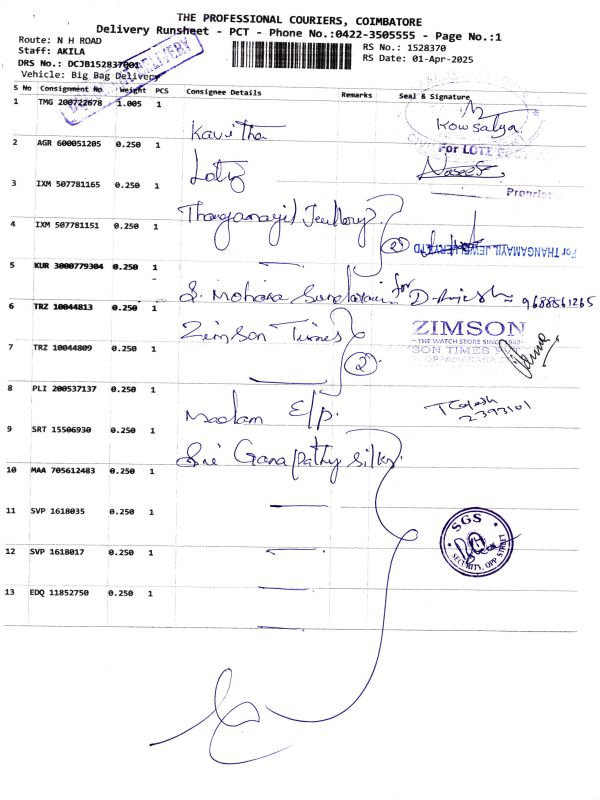 THE PROFESSIONAL COURIERS, COIMBATORE
Delivery Runsheet - PCT - Phone No.:0422-3505555 - Page No.:1
Route: N H ROAD
RS No.: 1528370
Staff: AKILA
RS Date: 01-Apr-2025
DRS No.: DCJB152837001
Vehicle: Big Bag Delivery
S No Consignment No Weight PCS Consignee Details Remarks Seal & Signature
1 TMG 200722678 1.005 1
Kavitha
Kowsalya
2 AGR 600051205 0.250 1
For LOTE
Lotz
3 IXM 507781165 0.250 1
Propriet
Thangamayil Jewllery
4 IXM 507781151 0.250 1
2
For THANGAMAYIL JEWELLERY LTD
5 KUR 3000779304 0.250 1
S. Mohana Sundaram for
9688561265
6 TRZ 10044813 0.250 1
Zimson Times
ZIMSON
THE WATCH STORE SINCE 1948
SON TIMES
7 TRZ 10044809 0.250 1
2
8 PLI 200537137 0.250 1
Madam E/p.
2393101
9 SRT 15506930 0.250 1
Sri Ganapathy Silks
10 MAA 705612483 0.250 1
11 SVP 1618035 0.250 1
SGS
SECURITY, OPP STREET
12 SVP 1618017 0.250 1
13 EDQ 11852750 0.250 1